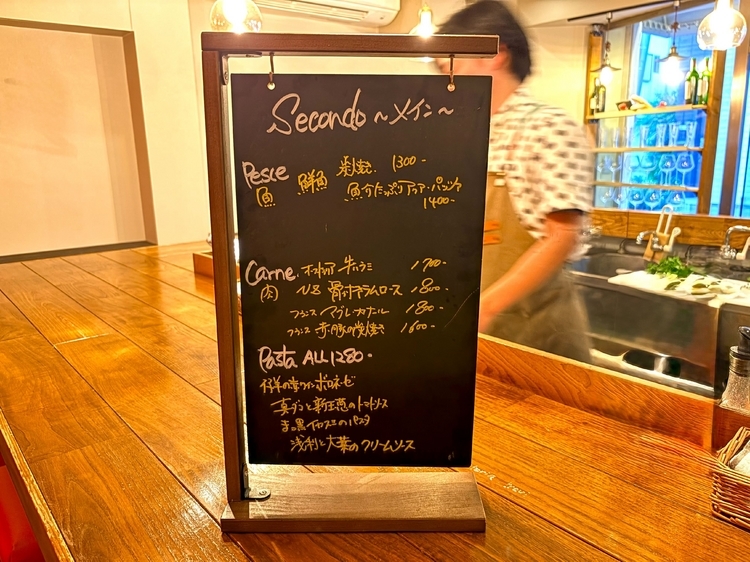 Secondo ～メイン～
Pesce 炭焼き. 1300-
魚 鮮魚 魚介たっぷりアクア・パッツァ
1400-
Carne. 牛ハラミ 1700-
(肉) 骨付ラムロース 1800-
フランス マグレカナール 1800-
フランス 豚の炭焼き 1600-
Pasta ALL 1280-
仔羊の赤ワインボロネーゼ
真ダコと新玉葱のトマトソース
まっ黒イカスミのパスタ
浅利と大葉のクリームソース